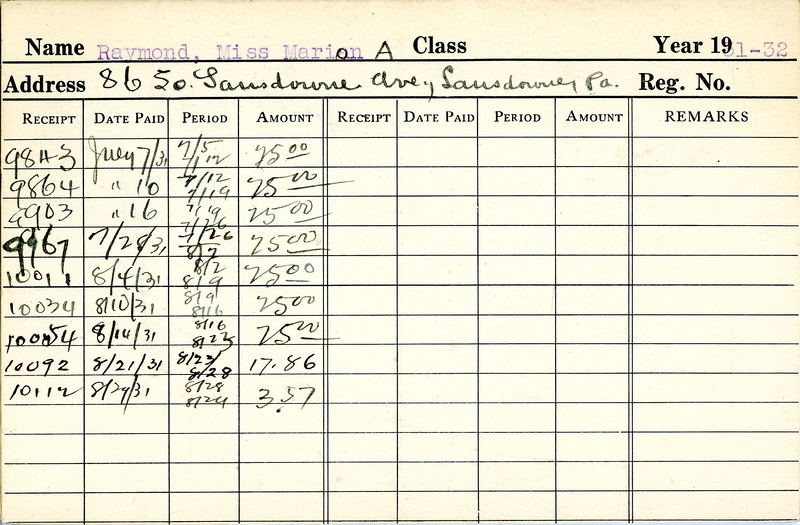 Name Raymond, Miss Marion A Class Year 1931-32
Address 86 So. Lansdowne Ave, Lansdowne, Pa. Reg. No.
RECEIPT DATE PAID PERIOD AMOUNT RECEIPT DATE PAID PERIOD AMOUNT REMARKS
9843 July 7/31 7/5 7/12 25 00
9864 " 10 7/12 7/19 25 00
9903 " 16 7/19 7/26 25 00
9967 7/28/31 7/26 8/2 25 00
10011 8/4/31 8/2 8/9 25 00
10034 8/10/31 8/9 8/16 25 00
10054 8/14/31 8/16 8/23 25 00
10092 8/21/31 8/23/ 8/28 17.86
10112 8/29/31 8/28 3.57